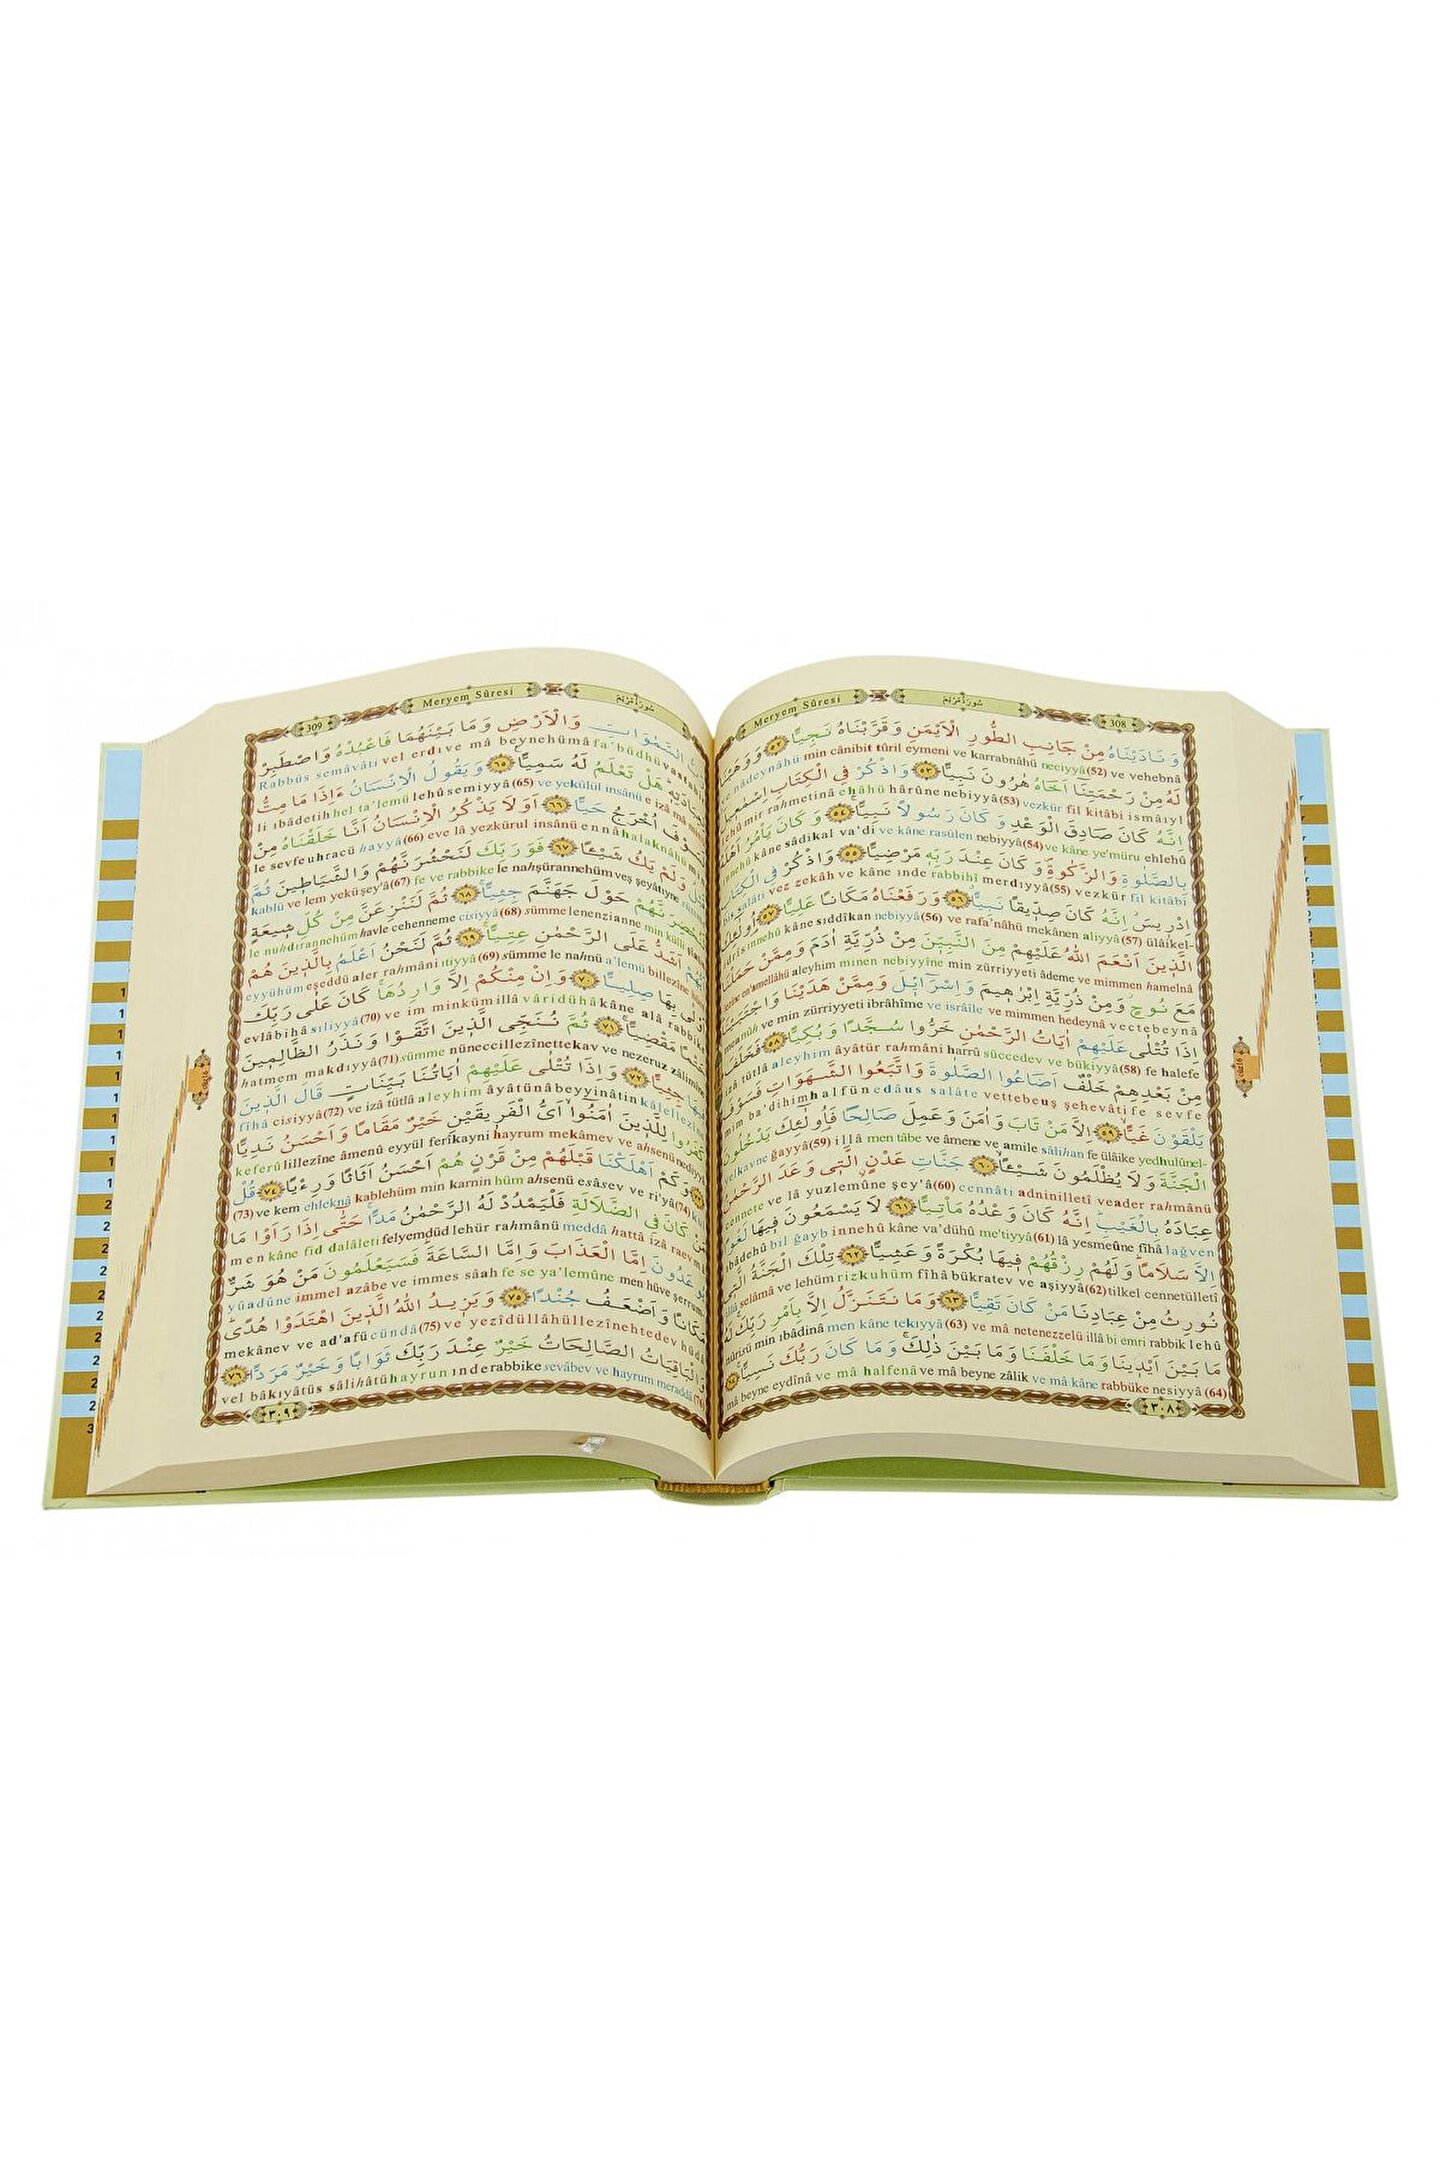 308
سُورَةُ مَرْيَمَ
Meryem Sûresi
وَنَادَيْنَاهُ مِنْ جَانِبِ الطُّورِ الْاَيْمَنِ وَقَرَّبْنَاهُ نَجِيًّا ﴿٥٢﴾ وَوَهَبْنَا
nâdeynâhü min cânibit tûril eymeni ve karrabnâhü neciyyâ(52) ve vehebnâ
لَهُ مِنْ رَحْمَتِنَٓا اَخَاهُ هٰرُونَ نَبِيًّا ﴿٥٣﴾ وَاذْكُرْ فِي الْكِتَابِ اِسْمٰعٖيلَ
lehû mir rahmetinâ ehâhü hârûne nebiyyâ(53) vezkür fil kitâbi ismâıyl
اِنَّهُ كَانَ صَادِقَ الْوَعْدِ وَكَانَ رَسُولًا نَبِيًّا ﴿٥٤﴾ وَكَانَ يَأْمُرُ اَهْلَهُ
innehû kâne sâdikal va'di ve kâne rasûlen nebiyyâ(54) ve kâne ye'müru ehlehû
بِالصَّلٰوةِ وَالزَّكٰوةِ وَكَانَ عِنْدَ رَبِّهٖ مَرْضِيًّا ﴿٥٥﴾ وَاذْكُرْ فِي الْكِتَابِ
bis salâti vez zekâh ve kâne ınde rabbihî merdıyyâ(55) vezkür fil kitâbi
اِدْرٖيسَ اِنَّهُ كَانَ صِدّٖيقًا نَبِيًّا ﴿٥٦﴾ وَرَفَعْنَاهُ مَكَانًا عَلِيًّا ﴿٥٧﴾ اُولٰٓئِكَ
idrîs innehû kâne sıddîkan nebiyyâ(56) ve rafa'nâhü mekânen aliyyâ(57) ülâikel-
الَّذٖينَ اَنْعَمَ اللّٰهُ عَلَيْهِمْ مِنَ النَّبِيّٖنَ مِنْ ذُرِّيَّةِ اٰدَمَ وَمِمَّنْ حَمَلْنَا
lezîne en'amellâhü aleyhim minen nebiyyîne min zürriyyeti âdeme ve mimmen hamelnâ
مَعَ نُوحٍ وَمِنْ ذُرِّيَّةِ اِبْرٰهٖيمَ وَاِسْرَٓائٖيلَ وَمِمَّنْ هَدَيْنَا وَاجْتَبَيْنَا
mea nûh ve min zürriyyeti ibrâhîme ve isrâîle ve mimmen hedeynâ vectebeynâ
اِذَا تُتْلٰى عَلَيْهِمْ اٰيَاتُ الرَّحْمٰنِ خَرُّوا سُجَّدًا وَبُكِيًّا ﴿٥٨﴾ فَخَلَفَ
izâ tütlâ aleyhim âyâtür rahmâni harrû süccedev ve bükiyyâ(58) fe halefe
مِنْ بَعْدِهِمْ خَلْفٌ اَضَاعُوا الصَّلٰوةَ وَاتَّبَعُوا الشَّهَوَاتِ فَسَوْفَ
mim ba'dihim halfün edâus salâte vettebeuş şehevâti fe sevfe
يَلْقَوْنَ غَيًّا ﴿٥٩﴾ اِلَّا مَنْ تَابَ وَاٰمَنَ وَعَمِلَ صَالِحًا فَاُولٰٓئِكَ يَدْخُلُونَ
yelkavne ğayyâ(59) illâ men tâbe ve âmene ve amile sâlihan fe ülâike yedhulûnel-
الْجَنَّةَ وَلَا يُظْلَمُونَ شَيْـًٔا ﴿٦٠﴾ جَنَّاتِ عَدْنٍ الَّتٖي وَعَدَ الرَّحْمٰنُ
cennete ve lâ yuzlemûne şey'â(60) cennâti adninilletî veader rahmânü
عِبَادَهُ بِالْغَيْبِ اِنَّهُ كَانَ وَعْدُهُ مَأْتِيًّا ﴿٦١﴾ لَا يَسْمَعُونَ فٖيهَا لَغْوًا
ıbâdehû bil ğayb innehû kâne va'dühû me'tiyyâ(61) lâ yesmeûne fîhâ lağven
اِلَّا سَلَامًا وَلَهُمْ رِزْقُهُمْ فٖيهَا بُكْرَةً وَعَشِيًّا ﴿٦٢﴾ تِلْكَ الْجَنَّةُ الَّتٖي
illâ selâmâ ve lehüm rizkuhüm fîhâ bükratev ve aşiyyâ(62) tilkel cennetülletî
نُورِثُ مِنْ عِبَادِنَا مَنْ كَانَ تَقِيًّا ﴿٦٣﴾ وَمَا نَتَنَزَّلُ اِلَّا بِاَمْرِ رَبِّكَ لَهُ
nûrisü min ıbâdinâ men kâne tekıyyâ(63) ve mâ netenezzelü illâ bi emri rabbik lehû
مَا بَيْنَ اَيْدٖينَا وَمَا خَلْفَنَا وَمَا بَيْنَ ذٰلِكَ وَمَا كَانَ رَبُّكَ نَسِيًّا ﴿٦٤﴾
mâ beyne eydînâ ve mâ halfenâ ve mâ beyne zâlik ve mâ kâne rabbüke nesiyyâ(64)
٣٠٨
309
Meryem Sûresi
سُورَةُ مَرْيَمَ
السَّمٰوَاتِ وَالْاَرْضِ وَمَا بَيْنَهُمَا فَاعْبُدْهُ وَاصْطَبِرْ
Rabbüs semâvâti vel erdı ve mâ beynehümâ fa'büdhü vastabir
لِعِبَادَتِهٖ هَلْ تَعْلَمُ لَهُ سَمِيًّا ﴿٦٥﴾ وَيَقُولُ الْاِنْسَانُ ءَاِذَا مَا مِتُّ
li ıbâdetih hel ta'lemü lehû semiyyâ(65) ve yekûlül insânü e izâ mâ mittü
لَسَوْفَ اُخْرَجُ حَيًّا ﴿٦٦﴾ اَوَلَا يَذْكُرُ الْاِنْسَانُ اَنَّا خَلَقْنَاهُ مِنْ
le sevfe uhracü hayyâ(66) eve lâ yezkürul insânü ennâ halaknâhü min
قَبْلُ وَلَمْ يَكُ شَيْـًٔا ﴿٦٧﴾ فَوَرَبِّكَ لَنَحْشُرَنَّهُمْ وَالشَّيَاطٖينَ ثُمَّ
kablü ve lem yekü şey'â(67) fe ve rabbike le nahşürannehüm veş şeyâtıyne sümme
لَنُحْضِرَنَّهُمْ حَوْلَ جَهَنَّمَ جِثِيًّا ﴿٦٨﴾ ثُمَّ لَنَنْزِعَنَّ مِنْ كُلِّ شٖيعَةٍ
le nuhdırannehüm havle cehenneme cisiyyâ(68) sümme lenenzianne min külli şîatin
اَيُّهُمْ اَشَدُّ عَلَى الرَّحْمٰنِ عِتِيًّا ﴿٦٩﴾ ثُمَّ لَنَحْنُ اَعْلَمُ بِالَّذٖينَ هُمْ
eyyühüm eşeddü aler rahmâni ıtiyyâ(69) sümme le nahnü a'lemü billezîne hüm
اَوْلٰى بِهَا صِلِيًّا ﴿٧٠﴾ وَاِنْ مِنْكُمْ اِلَّا وَارِدُهَا كَانَ عَلٰى رَبِّكَ
evlâ bihâ sıliyyâ(70) ve im minküm illâ vâridühâ kâne alâ rabbike
حَتْمًا مَقْضِيًّا ﴿٧١﴾ ثُمَّ نُنَجِّي الَّذٖينَ اتَّقَوْا وَنَذَرُ الظَّالِمٖينَ
hatmem makdıyyâ(71) sümme nüneccillezînettekav ve nezeruz zâlimîne
فٖيهَا جِثِيًّا ﴿٧٢﴾ وَاِذَا تُتْلٰى عَلَيْهِمْ اٰيَاتُنَا بَيِّنَاتٍ قَالَ الَّذٖينَ
fîhâ cisiyyâ(72) ve izâ tütlâ aleyhim âyâtünâ beyyinâtin kâlellezîne
كَفَرُوا لِلَّذٖينَ اٰمَنُوا اَيُّ الْفَرٖيقَيْنِ خَيْرٌ مَقَامًا وَاَحْسَنُ نَدِيًّا
keferû lillezîne âmenû eyyül ferîkayni hayrum mekâmev ve ahsenü nediyyâ
﴿٧٣﴾ وَكَمْ اَهْلَكْنَا قَبْلَهُمْ مِنْ قَرْنٍ هُمْ اَحْسَنُ اَثَاثًا وَرِءْيًا ﴿٧٤﴾ قُلْ
(73) ve kem ehleknâ kablehüm min karnin hüm ahsenü esâsev ve ri'yâ(74) kul
مَنْ كَانَ فِي الضَّلَالَةِ فَلْيَمْدُدْ لَهُ الرَّحْمٰنُ مَدًّا حَتّٰٓى اِذَا رَاَوْا مَا
men kâne fid dalâleti felyemdüd lehür rahmânü meddâ hattâ izâ raev mâ
يُوعَدُونَ اِمَّا الْعَذَابَ وَاِمَّا السَّاعَةَ فَسَيَعْلَمُونَ مَنْ هُوَ شَرٌّ
yûadûne immel azâbe ve immes sâah fe se ya'lemûne men hüve şerrum
مَكَانًا وَاَضْعَفُ جُنْدًا ﴿٧٥﴾ وَيَزٖيدُ اللّٰهُ الَّذٖينَ اهْتَدَوْا هُدًى
mekânev ve ad'afü cündâ(75) ve yezîdüllâhüllezînehtedev hüdâ
وَالْبَاقِيَاتُ الصَّالِحَاتُ خَيْرٌ عِنْدَ رَبِّكَ ثَوَابًا وَخَيْرٌ مَرَدًّا ﴿٧٦﴾
vel bâkıyâtüs sâlihâtü hayrun ınde rabbike sevâbev ve hayrum meraddâ(76)
٣٠٩